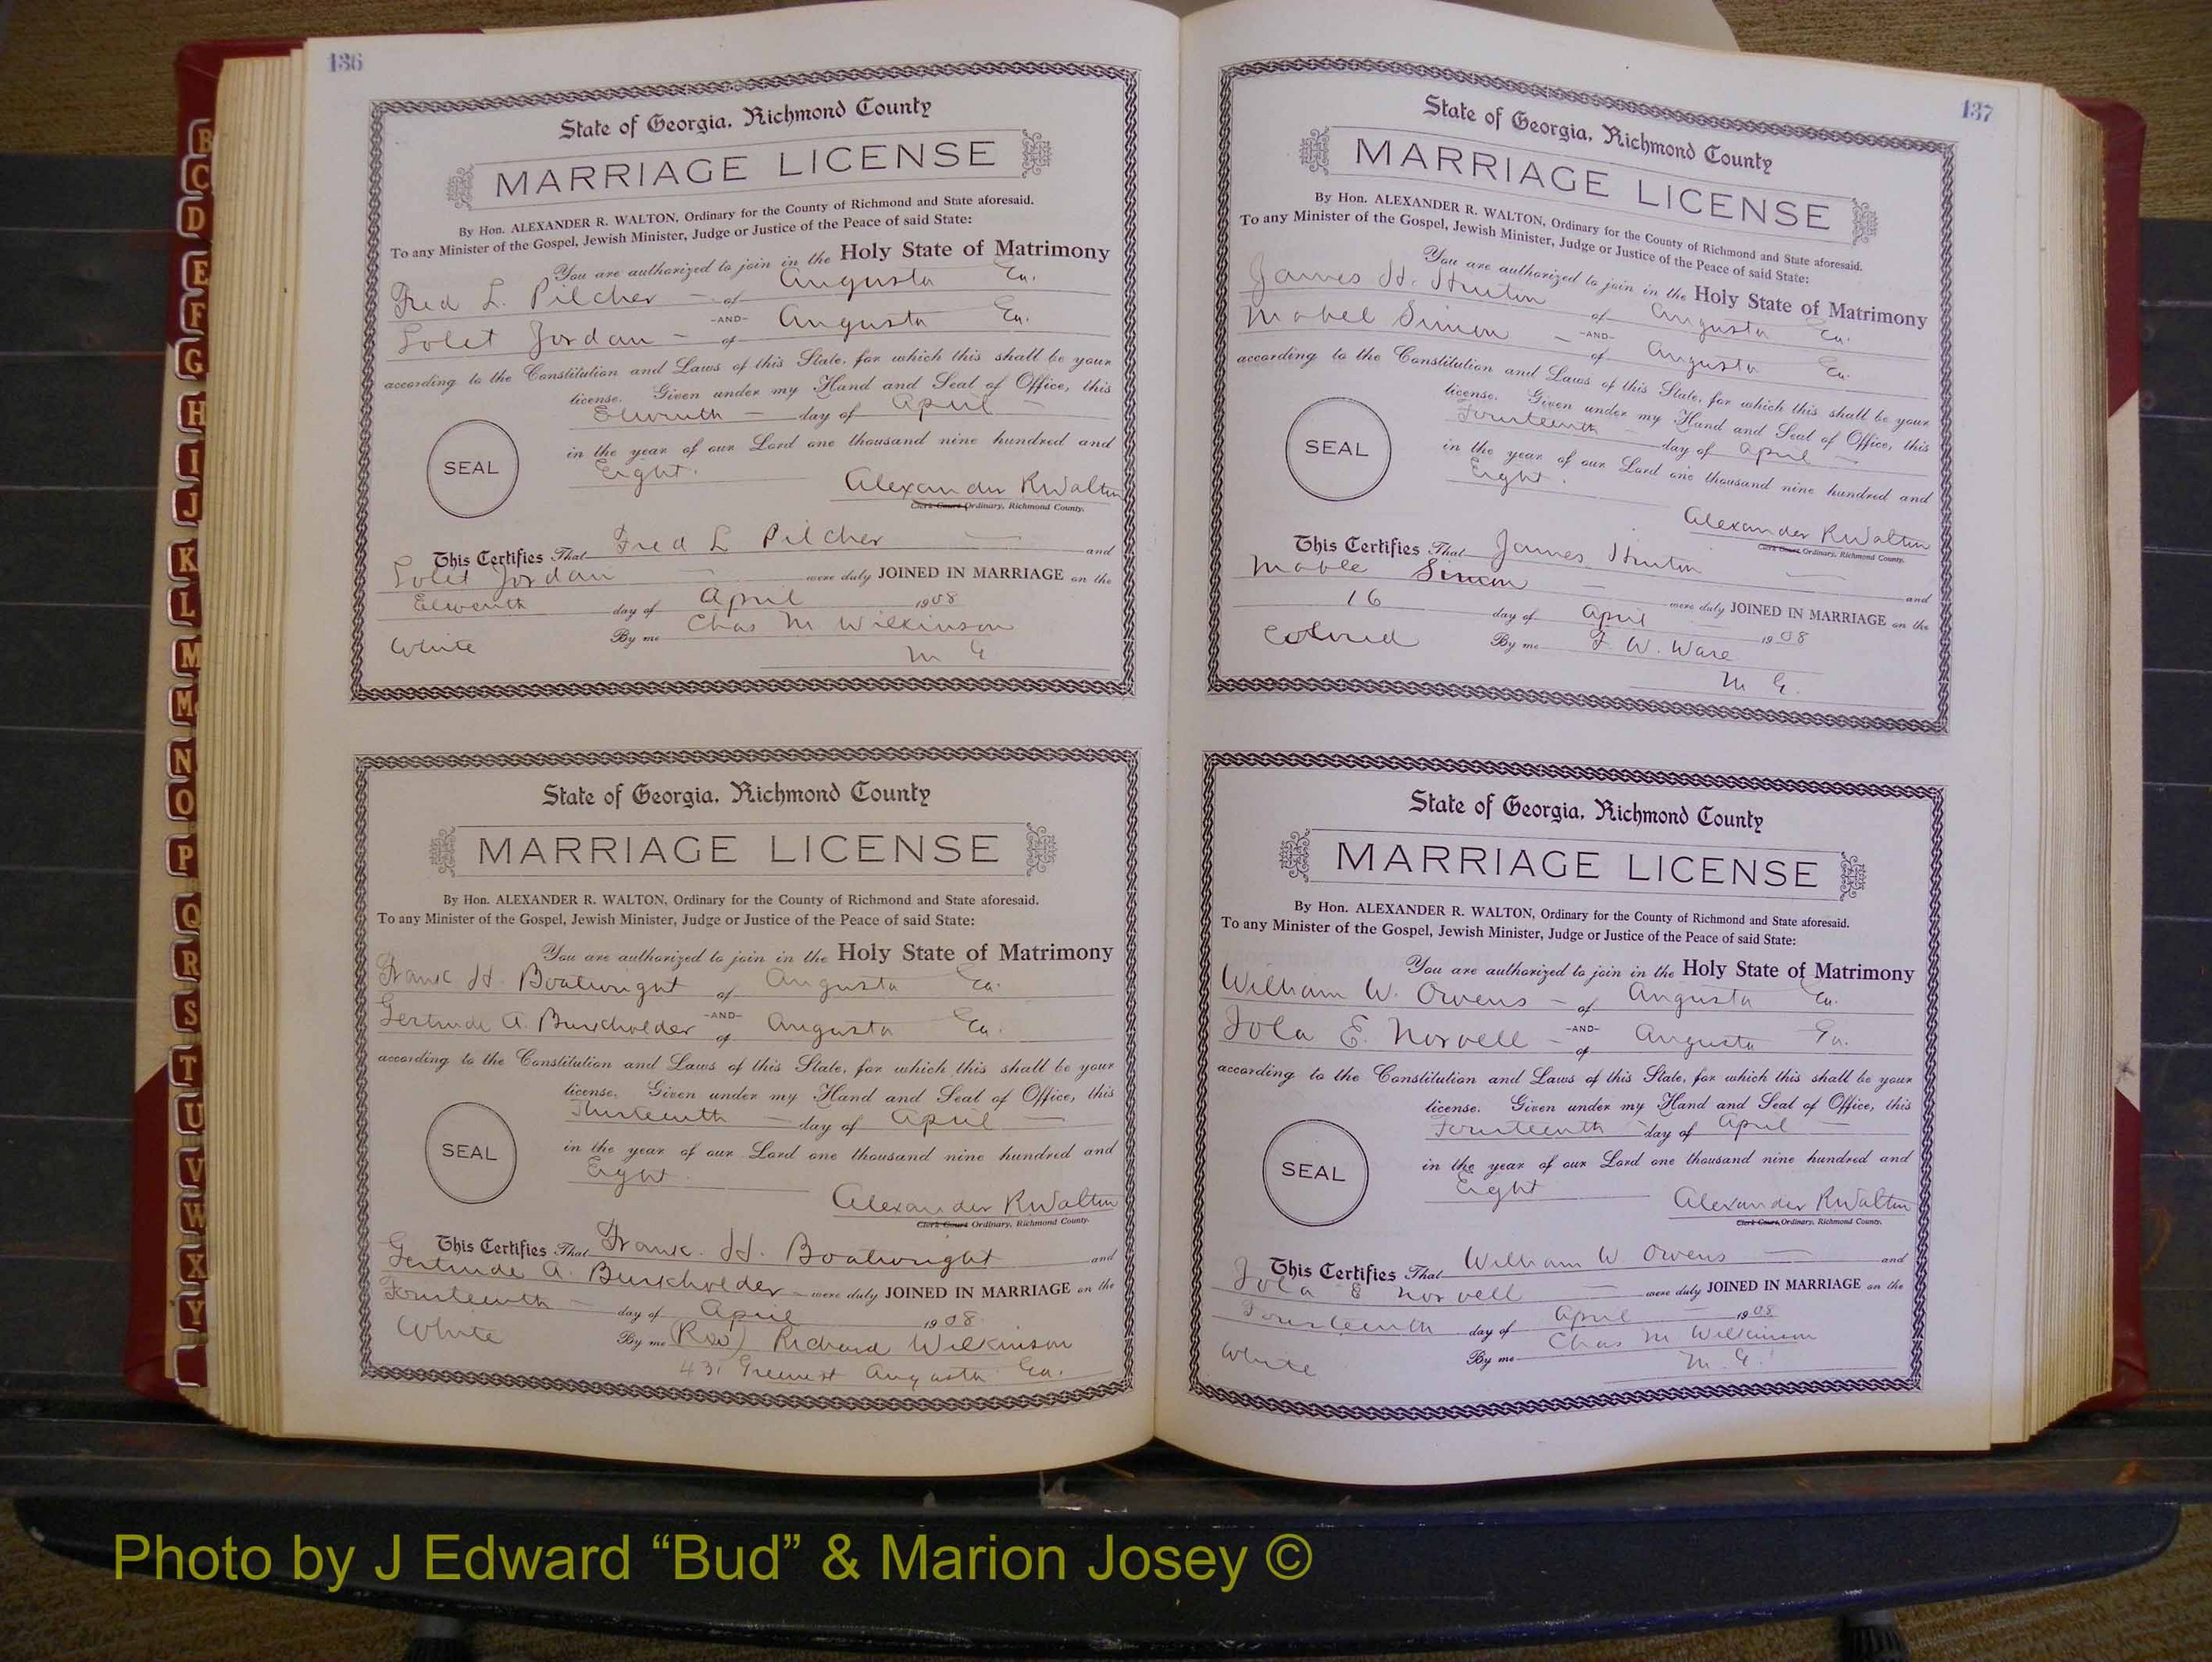 136
State of Georgia, Richmond County
MARRIAGE LICENSE
By Hon. ALEXANDER R. WALTON, Ordinary for the County of Richmond and State aforesaid.
To any Minister of the Gospel, Jewish Minister, Judge or Justice of the Peace of said State:
You are authorized to join in the Holy State of Matrimony
Fred L. Pilcher - of Augusta Ga.
-AND-
Jordan - of Augusta Ga.
according to the Constitution and Laws of this State, for which this shall be your
license. Given under my Hand and Seal of Office, this
Eleventh - day of April
in the year of our Lord one thousand nine hundred and
Eight.
SEAL
Alexander R Walton
Clerk Court Ordinary, Richmond County.
This Certifies That Fred L Pilcher and
Jordan were duly JOINED IN MARRIAGE on the
Eleventh day of April 1908
White By me Chas M Wilkinson
M G
State of Georgia, Richmond County
MARRIAGE LICENSE
By Hon. ALEXANDER R. WALTON, Ordinary for the County of Richmond and State aforesaid.
To any Minister of the Gospel, Jewish Minister, Judge or Justice of the Peace of said State:
You are authorized to join in the Holy State of Matrimony
Frank H. Boatwright of Augusta Ga.
-AND-
Gertrude A. Burkholder of Augusta Ga.
according to the Constitution and Laws of this State, for which this shall be your
license. Given under my Hand and Seal of Office, this
Thirteenth - day of April
in the year of our Lord one thousand nine hundred and
Eight.
SEAL
Alexander R Walton
Clerk Court Ordinary, Richmond County.
This Certifies That Frank. H. Boatwright and
Gertrude A. Burkholder - were duly JOINED IN MARRIAGE on the
Fourteenth - day of April 1908
White By me (Rev) Richard Wilkinson
431 Augusta Ga.
137
State of Georgia, Richmond County
MARRIAGE LICENSE
By Hon. ALEXANDER R. WALTON, Ordinary for the County of Richmond and State aforesaid.
To any Minister of the Gospel, Jewish Minister, Judge or Justice of the Peace of said State:
You are authorized to join in the Holy State of Matrimony
James H. of Augusta Ga.
-AND-
Mabel Simon - of Augusta Ga.
according to the Constitution and Laws of this State, for which this shall be your
license. Given under my Hand and Seal of Office, this
Fourteenth - day of April -
in the year of our Lord one thousand nine hundred and
Eight.
SEAL
Alexander R Walton
Clerk Court Ordinary, Richmond County.
This Certifies That James and
Mable Simon - were duly JOINED IN MARRIAGE on the
16 day of April 1908
Colored By me F. W. Ware
M G.
State of Georgia, Richmond County
MARRIAGE LICENSE
By Hon. ALEXANDER R. WALTON, Ordinary for the County of Richmond and State aforesaid.
To any Minister of the Gospel, Jewish Minister, Judge or Justice of the Peace of said State:
You are authorized to join in the Holy State of Matrimony
William W. Owens - of Augusta Ga.
-AND-
Iola E. Norvell - of Augusta Ga.
according to the Constitution and Laws of this State, for which this shall be your
license. Given under my Hand and Seal of Office, this
Fourteenth - day of April -
in the year of our Lord one thousand nine hundred and
Eight
SEAL
Alexander R Walton
Clerk Court, Ordinary, Richmond County.
This Certifies That William W Owens - and
Iola E Norvell - were duly JOINED IN MARRIAGE on the
Fourteenth day of April 1908
White By me Chas M Wilkinson
M. G.
B
C
D
E
F
G
H
I
J
K
L
M
Mc
N
O
P
Q
R
S
T
U
V
W
X
Y
Photo by J Edward “Bud” & Marion Josey ©